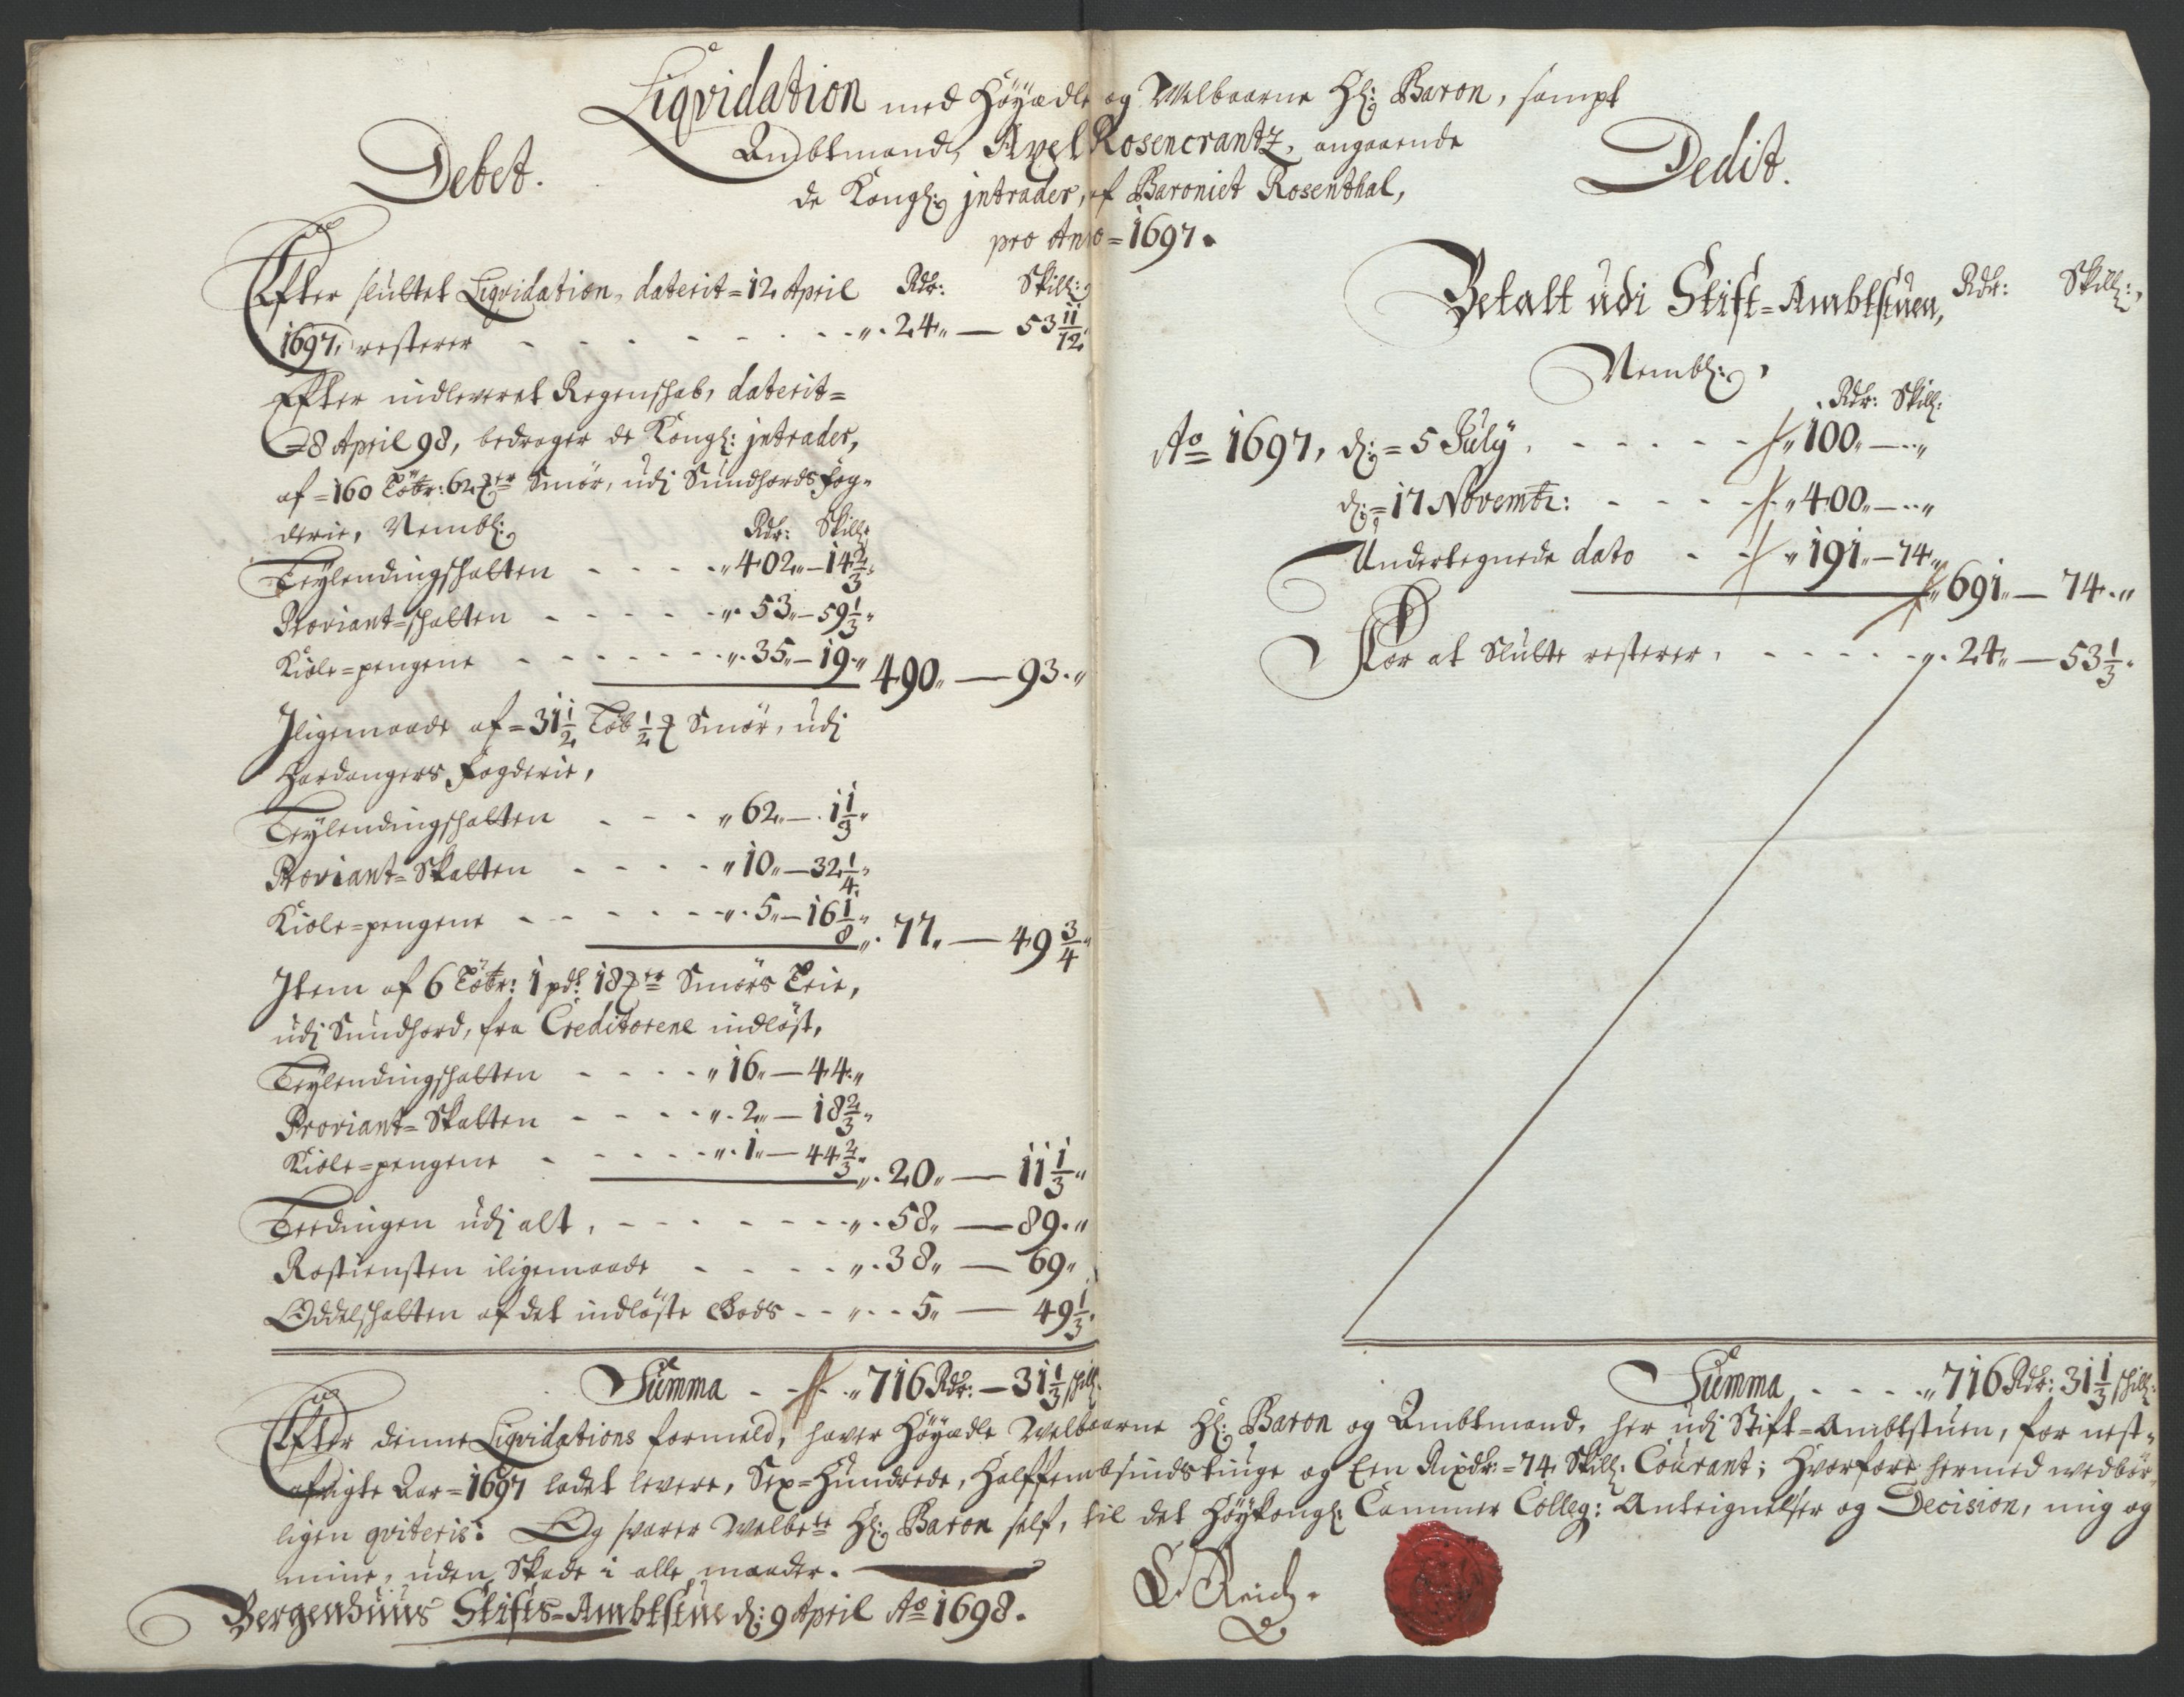 Liqvidation med Höÿædle og Welbaarne Hl: Baron, sampt
Ambtmand, Axel Rosencrantz, angaaende
de Kongl: jntrader, af Baroniet Rosenthal,
pro Anno = 1697.
Debet.
Efter sluttet Liqvidation, daterit = 12 April Rdr: Skill:
1697, resterer - - - - - - - - „. 24„ — 53 11/12.
Efter indleveret Regenschab, daterit =
= 8 April 98, bedrager de Kongl: jntrader,
af = 160 Löbr: 62 Smör, udj Sundhords fog-
derie, Nembl: Rdr: Skill:
Leÿlendingschatten - - - - „ 402„ — 14 2/3„
Proviant-schatten - - - - - „. 53„ — 59 1/3„
Kiöle-pengene - - - - - - „. 35„ — 19.„ 490„ — 93.„
Jligemaade af = 31 1/2 Löb 1/2 Smör, udj
Hardangers fogderie,
Leÿlendingschatten - - - „ 62„ —. 1 1/3„
Proviant-Skatten - - - - „ 10„ — 32 1/4„
Kiöle-pengene - - - - - - „. 5„ — 16 1/8„ „. 77„ — 49 3/4„
Item af 6 Löbr: 1 pd: 18 Smörs Leie,
udj Sundhord, fra Creditorene indlöst,
Leÿlendingschatten - - - - „ 16„ — 44.„
Proviant-Skatten - - - - „. 2„ — 18 2/3„
Kiöle-pengene - - - - - „. 1„ — 44 2/3„ „. 20„ — 11 1/3„
Leedingen udj alt, - - - - - - - „. 58„ — 89.„
Rostiensten iligemaade - - - - „. 38„ — 69„
Oddelschatten af det indlöste Gods - - „. - 5„ — 49 1/3„
Summa - - - „ 716 Rdr: — 31 1/3 skill:
Dedit.
Betalt udi Stift-Ambtstuen, Rdr: Skill:
Nembl:
Rdr: Skill:
Ao 1697, d: = 5 July, - - - - - „ 100„ — .. „
d: = 17 Novembr: - - - - - „ 400„ — .. „
Undertegnede dato - - „ 191„ — 74„ „ 691„ — 74.„
For at slutte resterer, - - - - - „. 24„ — 53 1/3„
Summa - - - - „ 716 Rdr: 31 1/3 skill:
Efter denne Liqvidations formeld, haver Höÿædle Welbaarne Hl: Baron og Ambtmand, her udj Stift-Ambtstuen, for nest-
afvigte Aar = 1697 ladet levere, Sex-Hundrede, Halffembsindstiuge og Een Rixdr: = 74 Skill: Courant; Hvorfore hermed wedbör-
ligen qviteris: Og svarer Welbte Hl: Baron self, til det Höÿkongl: Cammer Colleg: Anteignelser og Decision, mig og
mine, uden Skade i alle maader.
Bergenhuus Stifts-Ambtstue d: 9 April Ao 1698.
Reich.